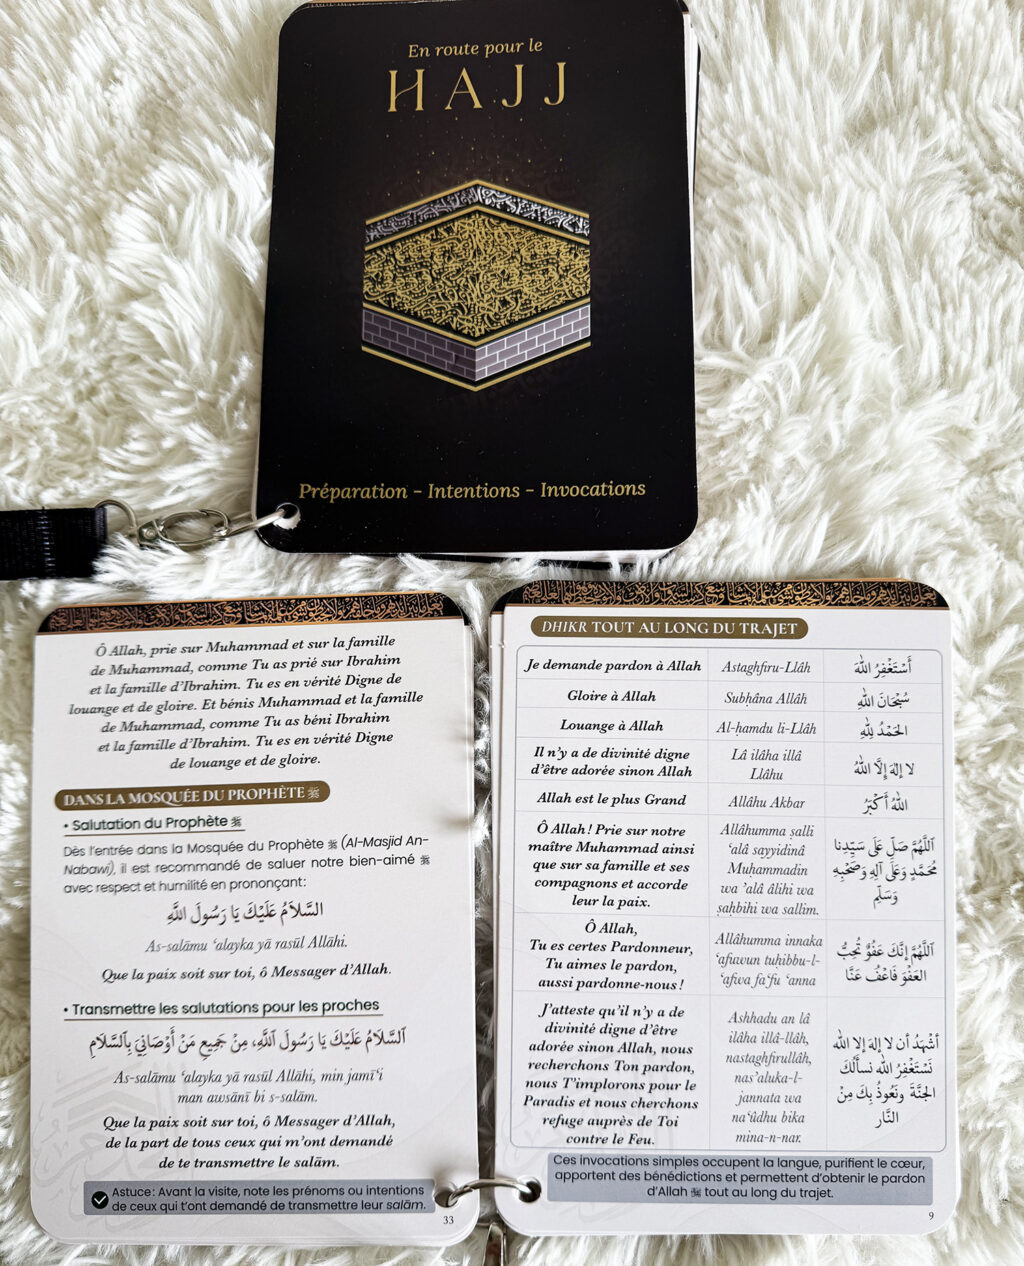 En route pour le
HAJJ
Préparation - Intentions - Invocations
Ô Allah, prie sur Muhammad et sur la famille
de Muhammad, comme Tu as prié sur Ibrahim
et la famille d'Ibrahim. Tu es en vérité Digne de
louange et de gloire. Et bénis Muhammad et la famille
de Muhammad, comme Tu as béni Ibrahim
et la famille d'Ibrahim. Tu es en vérité Digne
de louange et de gloire.
DANS LA MOSQUÉE DU PROPHÈTE ﷺ
• Salutation du Prophète ﷺ
Dès l'entrée dans la Mosquée du Prophète ﷺ (Al-Masjid An-
Nabawi), il est recommandé de saluer notre bien-aimé ﷺ
avec respect et humilité en prononçant :
السَّلَامُ عَلَيْكَ يَا رَسُولَ اللَّهِ
As-salāmu ‘alayka yā rasūl Allāhi.
Que la paix soit sur toi, ô Messager d'Allah.
• Transmettre les salutations pour les proches
اَلسَّلَامُ عَلَيْكَ يَا رَسُولَ اللَّهِ، مِنْ جَمِيعِ مَنْ أَوْصَانِيَ بِالسَّلَامِ
As-salāmu ‘alayka yā rasūl Allāhi, min jamī‘i
man awsānī bi s-salām.
Que la paix soit sur toi, ô Messager d'Allah,
de la part de tous ceux qui m'ont demandé
de te transmettre le salām.
Astuce : Avant la visite, note les prénoms ou intentions
de ceux qui t'ont demandé de transmettre leur salām.
33
DHIKR TOUT AU LONG DU TRAJET
Je demande pardon à Allah
Astaghfiru-Llâh
أَسْتَغْفِرُ اللهَ
Gloire à Allah
Subḥâna Allâh
سُبْحَانَ اللهِ
Louange à Allah
Al-ḥamdu li-Llâh
الحَمْدُ لِلَّهِ
Il n'y a de divinité digne
d'être adorée sinon Allah
Lâ ilâha illâ
Llâhu
لا إِلهَ إِلَّا اللهُ
Allah est le plus Grand
Allâhu Akbar
اللهُ أَكْبَرُ
Ô Allah ! Prie sur notre
maître Muhammad ainsi
que sur sa famille et ses
compagnons et accorde
leur la paix.
Allâhumma ṣalli
‘alâ sayyidinâ
Muḥammadin
wa ’alâ âlihi wa
ṣaḥbihi wa sallim.
اَللَّهُمَّ صَلِّ عَلَى سَيِّدِنا
مُحَمَّدٍ وَعَلَى آلِهِ وَصَحْبِهِ
وَسَلِّم
Ô Allah,
Tu es certes Pardonneur,
Tu aimes le pardon,
aussi pardonne-nous !
Allâhumma innaka
‘afuwun tuḥibbu-l-
‘afwa fa‘fu ‘anna
اَللَّهُمَّ إِنَّكَ عَفُوٌّ تُحِبُّ
العَفْوَ فَاعْفُ عَنَّا
J'atteste qu'il n'y a de
divinité digne d'être
adorée sinon Allah, nous
recherchons Ton pardon,
nous T'implorons pour le
Paradis et nous cherchons
refuge auprès de Toi
contre le Feu.
Ashhadu an lâ
ilâha illâ-llâh,
nastaghfirullâh,
nas’aluka-l-
jannata wa
na‘ûdhu bika
mina-n-nar.
أشْهَدُ أن لا إلهَ إلا الله
نَسْتَغْفِرُ الله نَسألُكَ
الجنَّةَ ونَعُوذُ بِكَ مِنْ
النَّار
Ces invocations simples occupent la langue, purifient le cœur,
apportent des bénédictions et permettent d'obtenir le pardon
d'Allah ﷻ tout au long du trajet.
9